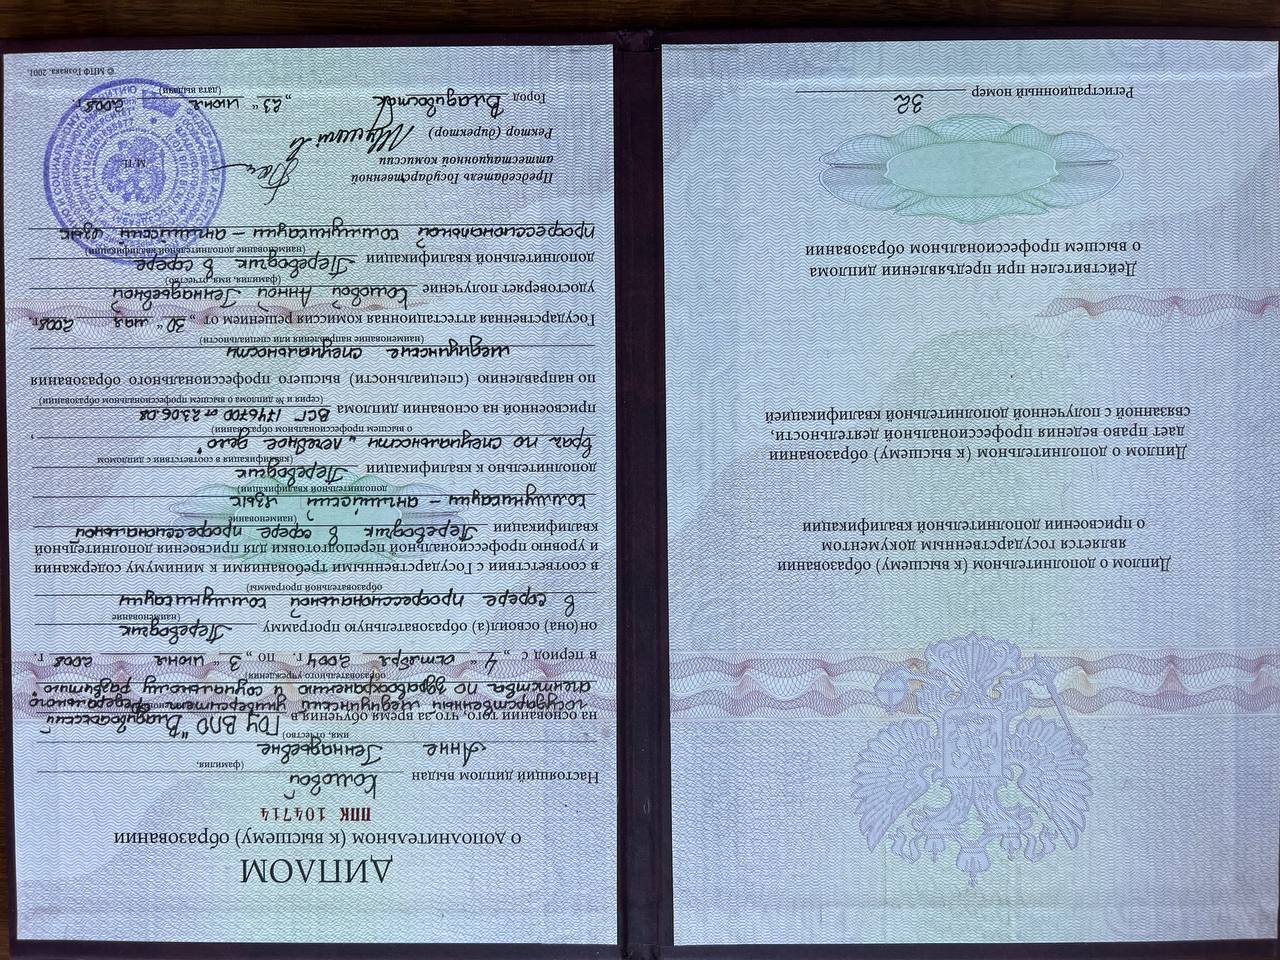 Диплом о дополнительном (к высшему) образовании
является государственным документом
о присвоении дополнительной квалификации
Диплом о дополнительном (к высшему) образовании
дает право ведения профессиональной деятельности,
связанной с полученной дополнительной квалификацией
Действителен при предъявлении диплома
о высшем профессиональном образовании
Регистрационный номер 32
ДИПЛОМ
О ДОПОЛНИТЕЛЬНОМ (К ВЫСШЕМУ) ОБРАЗОВАНИИ
ППК 104714
Настоящий диплом выдан
(фамилия,
Анне Геннадьевне
имя, отчество)
на основании того, что за время обучения в ГОУ ВПО "Владивостокский
государственный медицинский университет федерального
агентства по здравоохранению и социальному развитию"
образовательного учреждения)
в период с „4" октября 2004 г. по „3" июня 2008 г.
он(она) освоил(а) образовательную программу Переводчик
(наименование
в сфере профессиональной коммуникации
образовательной программы)
в соответствии с Государственными требованиями к минимуму содержания
и уровню профессиональной переподготовки для присвоения дополнительной
квалификации Переводчик в сфере профессиональной
(наименование
коммуникации – английский язык
дополнительной квалификации)
дополнительно к квалификации Переводчик
(квалификация в соответствии с дипломом
врач по специальности „лечебное дело",
о высшем профессиональном образовании)
присвоенной на основании диплома ВСГ 1746700 от 23.06.08
(серия и № диплома о высшем профессиональном образовании)
по направлению (специальности) высшего профессионального образования
медицинские специальности
(наименование направления или специальности)
Государственная аттестационная комиссия решением от „30" мая 2008 г.
удостоверяет получение Анной Геннадьевной
(фамилия, имя, отчество)
дополнительной квалификации Переводчик в сфере
(наименование дополнительной квалификации)
профессиональной коммуникации – английский язык
Председатель Государственной
аттестационной комиссии
Ректор (директор)
М.П.
Город Владивосток „23" июня 2008 г.
(дата выдачи)
© МПФ Гознака, 2001.